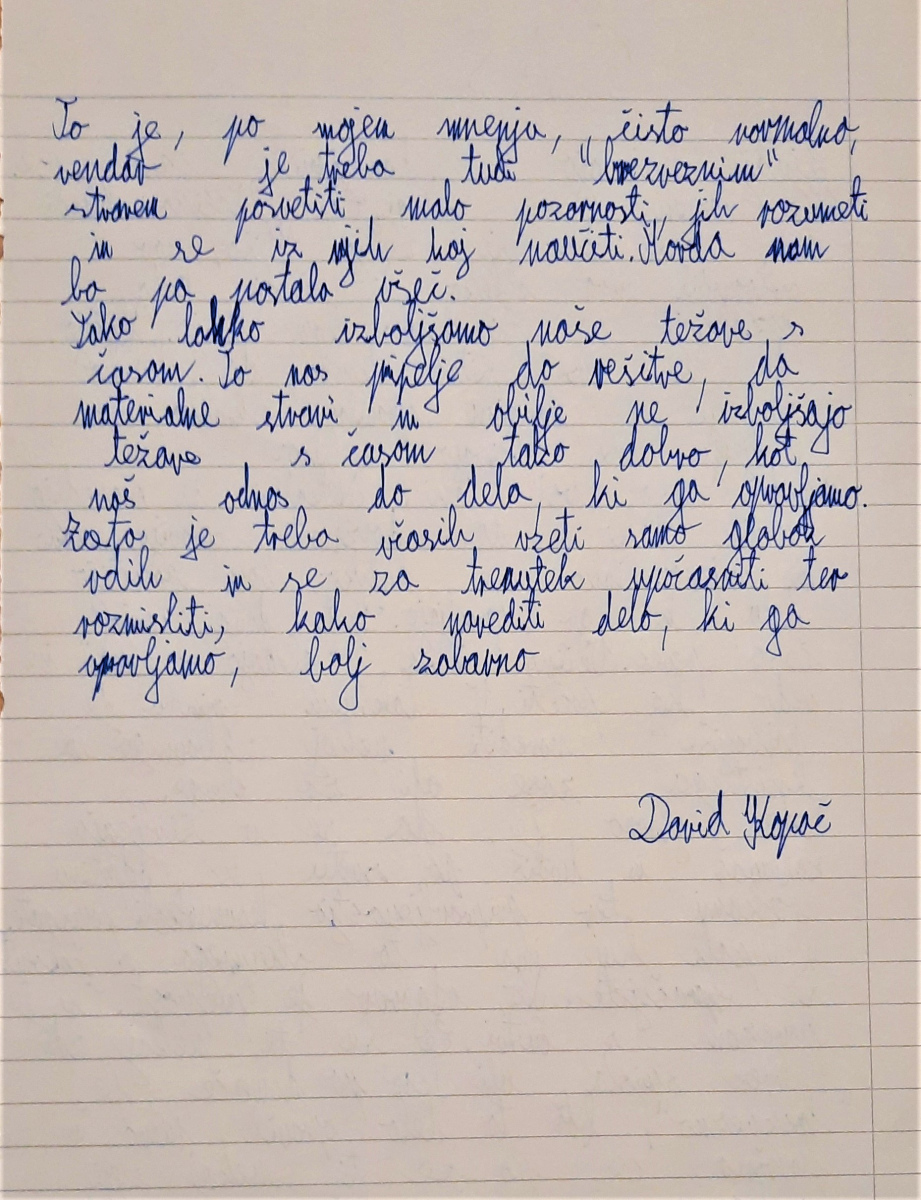 To je, po mojem mnenju, čisto normalno,
vendar je treba tudi "brezveznim"
stvarem posvetiti malo pozornosti, jih razumeti
in se iz njih kaj naučiti. Morda nam
bo pa postala všeč.
Tako lahko izboljšamo naše težave s
časom. To nas pripelje do rešitve, da
materialne stvari in obilje ne izboljšajo
težave s časom tako dobro, kot
naš odnos do dela, ki ga opravljamo.
Zato je treba včasih vzeti samo globok
vdih in se za trenutek upočasniti ter
razmisliti, kako narediti delo, ki ga
opravljamo, bolj zabavno
David Kopač